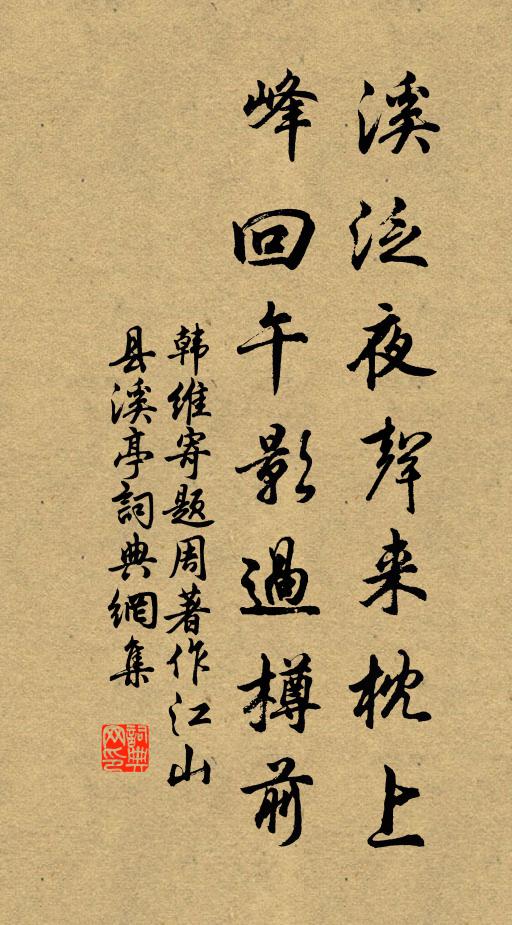 溪泛夜聲来枕上
峰回午影過樽前
韩維寄题周著作江山
县溪亭詞典網集
詞典网印